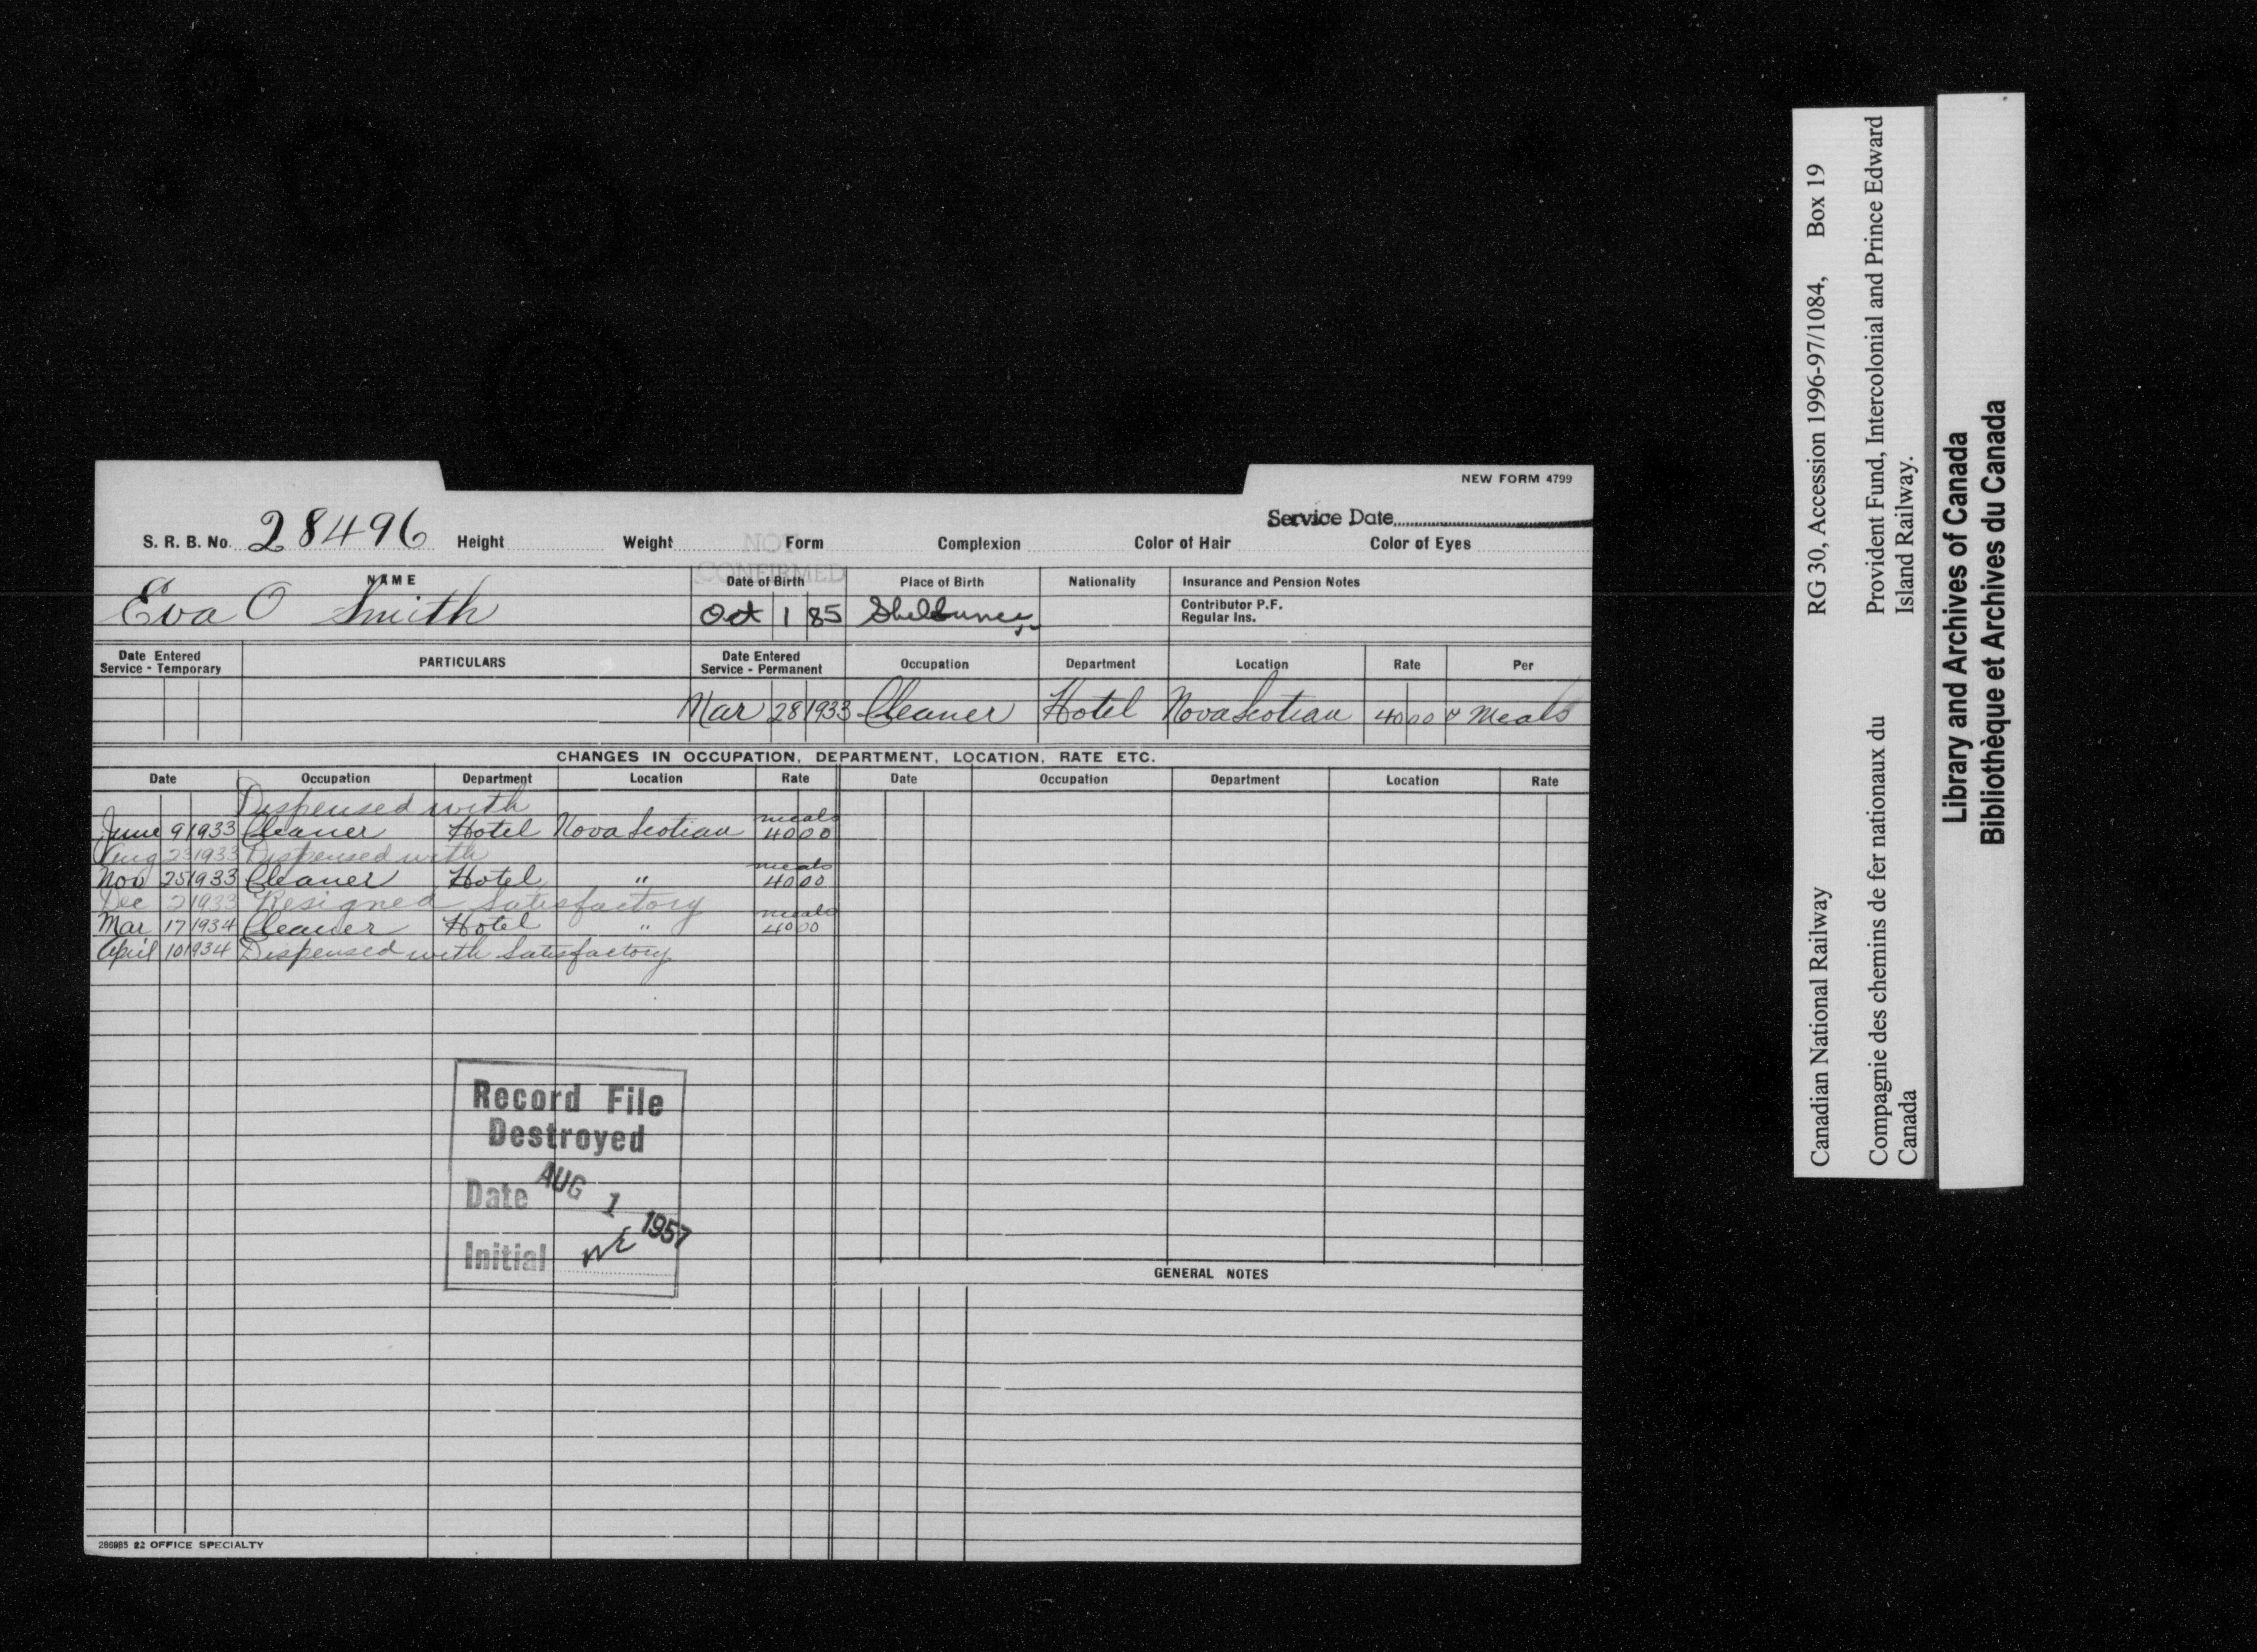 NEW FORM 4799
Service Date
S. R. B. No. 28496 Height Weight Form Complexion Color of Hair Color of Eyes
NOT CONFIRMED
NAME Date of Birth Place of Birth Nationality Insurance and Pension Notes
Eva O Smith Oct 1 85 Contributor P.F.
Regular Ins.
Date Entered Service - Temporary PARTICULARS Date Entered Service - Permanent Occupation Department Location Rate Per
Mar 28 1933 Cleaner Hotel Nova Scotian 40 00 & Meals
CHANGES IN OCCUPATION, DEPARTMENT, LOCATION, RATE ETC.
Date Occupation Department Location Rate Date Occupation Department Location Rate
Dispensed with
June 9 1933 Cleaner Hotel Nova Scotian meals 40 00
Aug 23 1933 Dispensed with
Nov 25 1933 Cleaner Hotel " meals 40 00
Dec 2 1933 Resigned Satisfactory
Mar 17 1934 Cleaner Hotel " meals 40 00
April 10 1934 Dispensed with Satisfactory
Record File
Destroyed
Date AUG 1 1957
Initial
GENERAL NOTES
22 OFFICE SPECIALTY
Canadian National Railway RG 30, Accession 1996-97/1084, Box 19
Compagnie des chemins de fer nationaux du Canada Provident Fund, Intercolonial and Prince Edward Island Railway.
Library and Archives of Canada
Bibliothèque et Archives du Canada